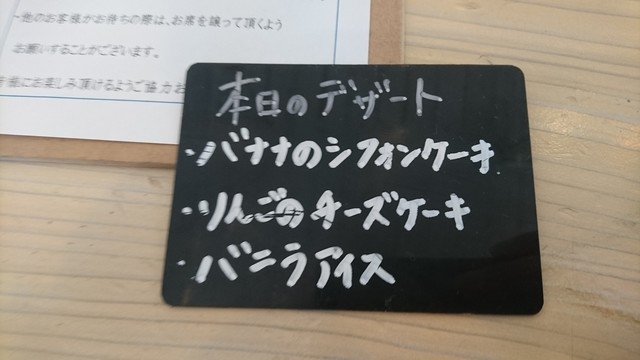 他のお客様がお待ちの際は、お席を譲って頂くよう
お願いすることがございます。
様にお楽しみ頂けるようご協力お
本日のデザート
・バナナのシフォンケーキ
・りんごのチーズケーキ
・バニラアイス